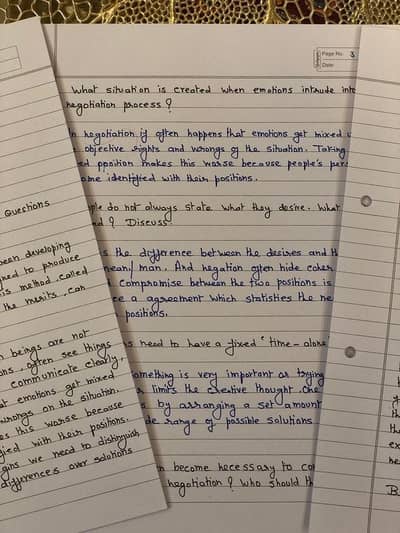 Page No. 3
Date
What situation is created when emotions intrude into
negotiation process?
In negotiation it often happens that emotions get mixed
objective rights and wrongs of the situation. Taking
position makes this worse because people's
identified with their positions.
do not always state what they desire. What
? Discuss.
the difference between the desires and
mean/man. And negation often hide
compromise between the two positions is
a agreement which statisties the
positions.
need to have a fixed 'time-alone
something is very important as trying
limits the creative thought. One
by arranging a set amount
range of possible solutions
become necessary to
negotiation? Who should
Questions
been developing
to produce
is method, called
the merits, can
beings are not
often see things
communicate clearly,
emotions get mixed
wrongs on the situation.
this worse because
with their positions.
we need to distinguish
differences over solutions